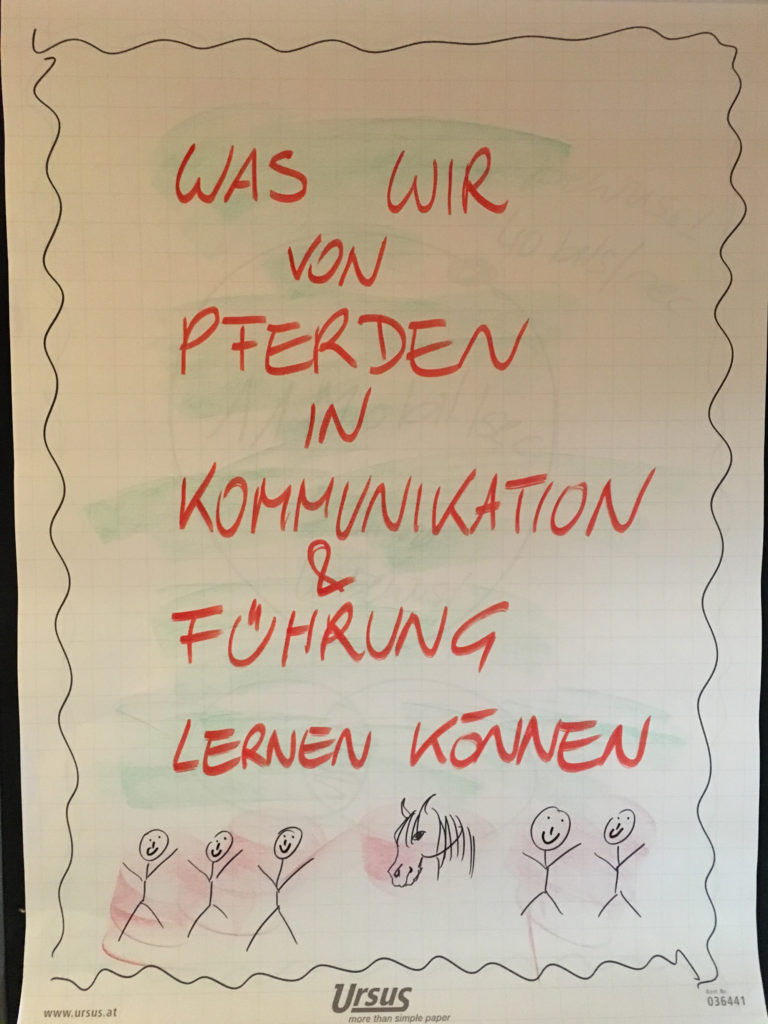 WAS WIR
VON
PFERDEN
IN
KOMMUNIKATION
&
FÜHRUNG
LERNEN KÖNNEN
www.ursus.at
URSUS
more than simple paper
Best. Nr.
036441